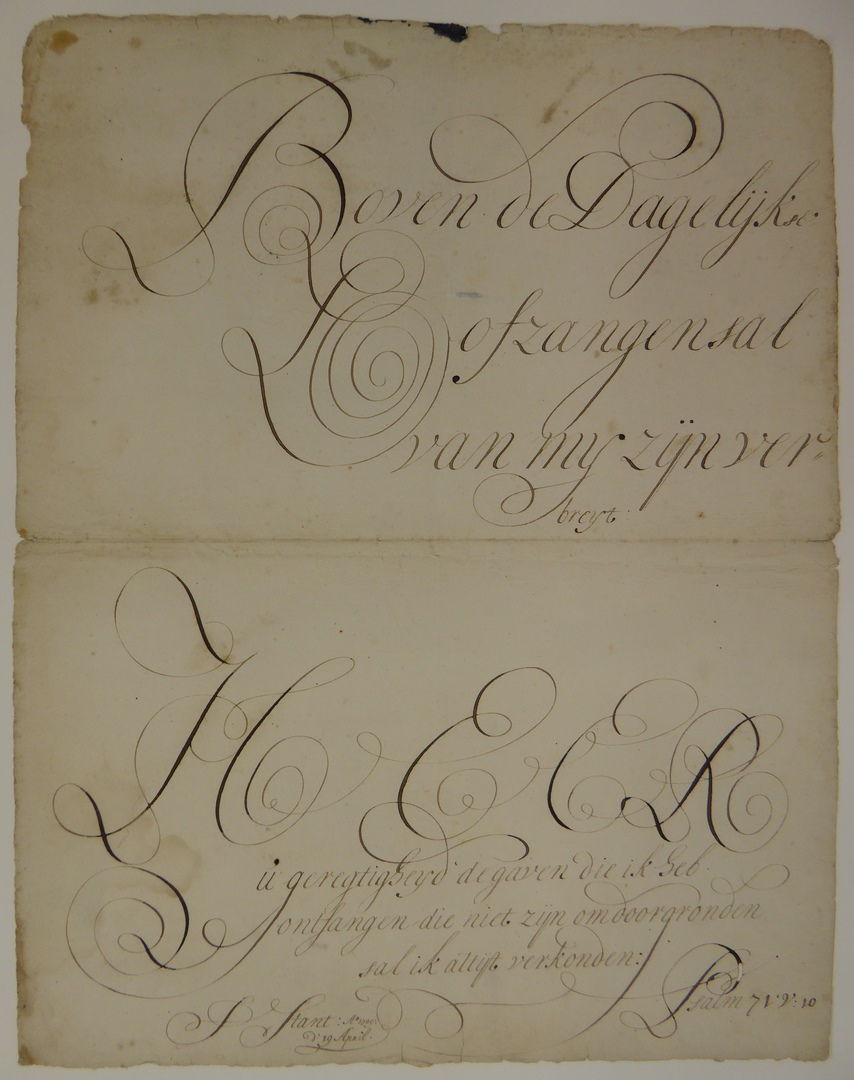 Boven de Dagelijkse
Lofzangen sal
van my zijn ver-
breyt
HEER
u geregtigheyd de gaven die ik heb
ontfangen die niet zijn om doorgronden
sal ik altijt verkonden:
Psalm 71 V: 10
Stant:
d' 19 April